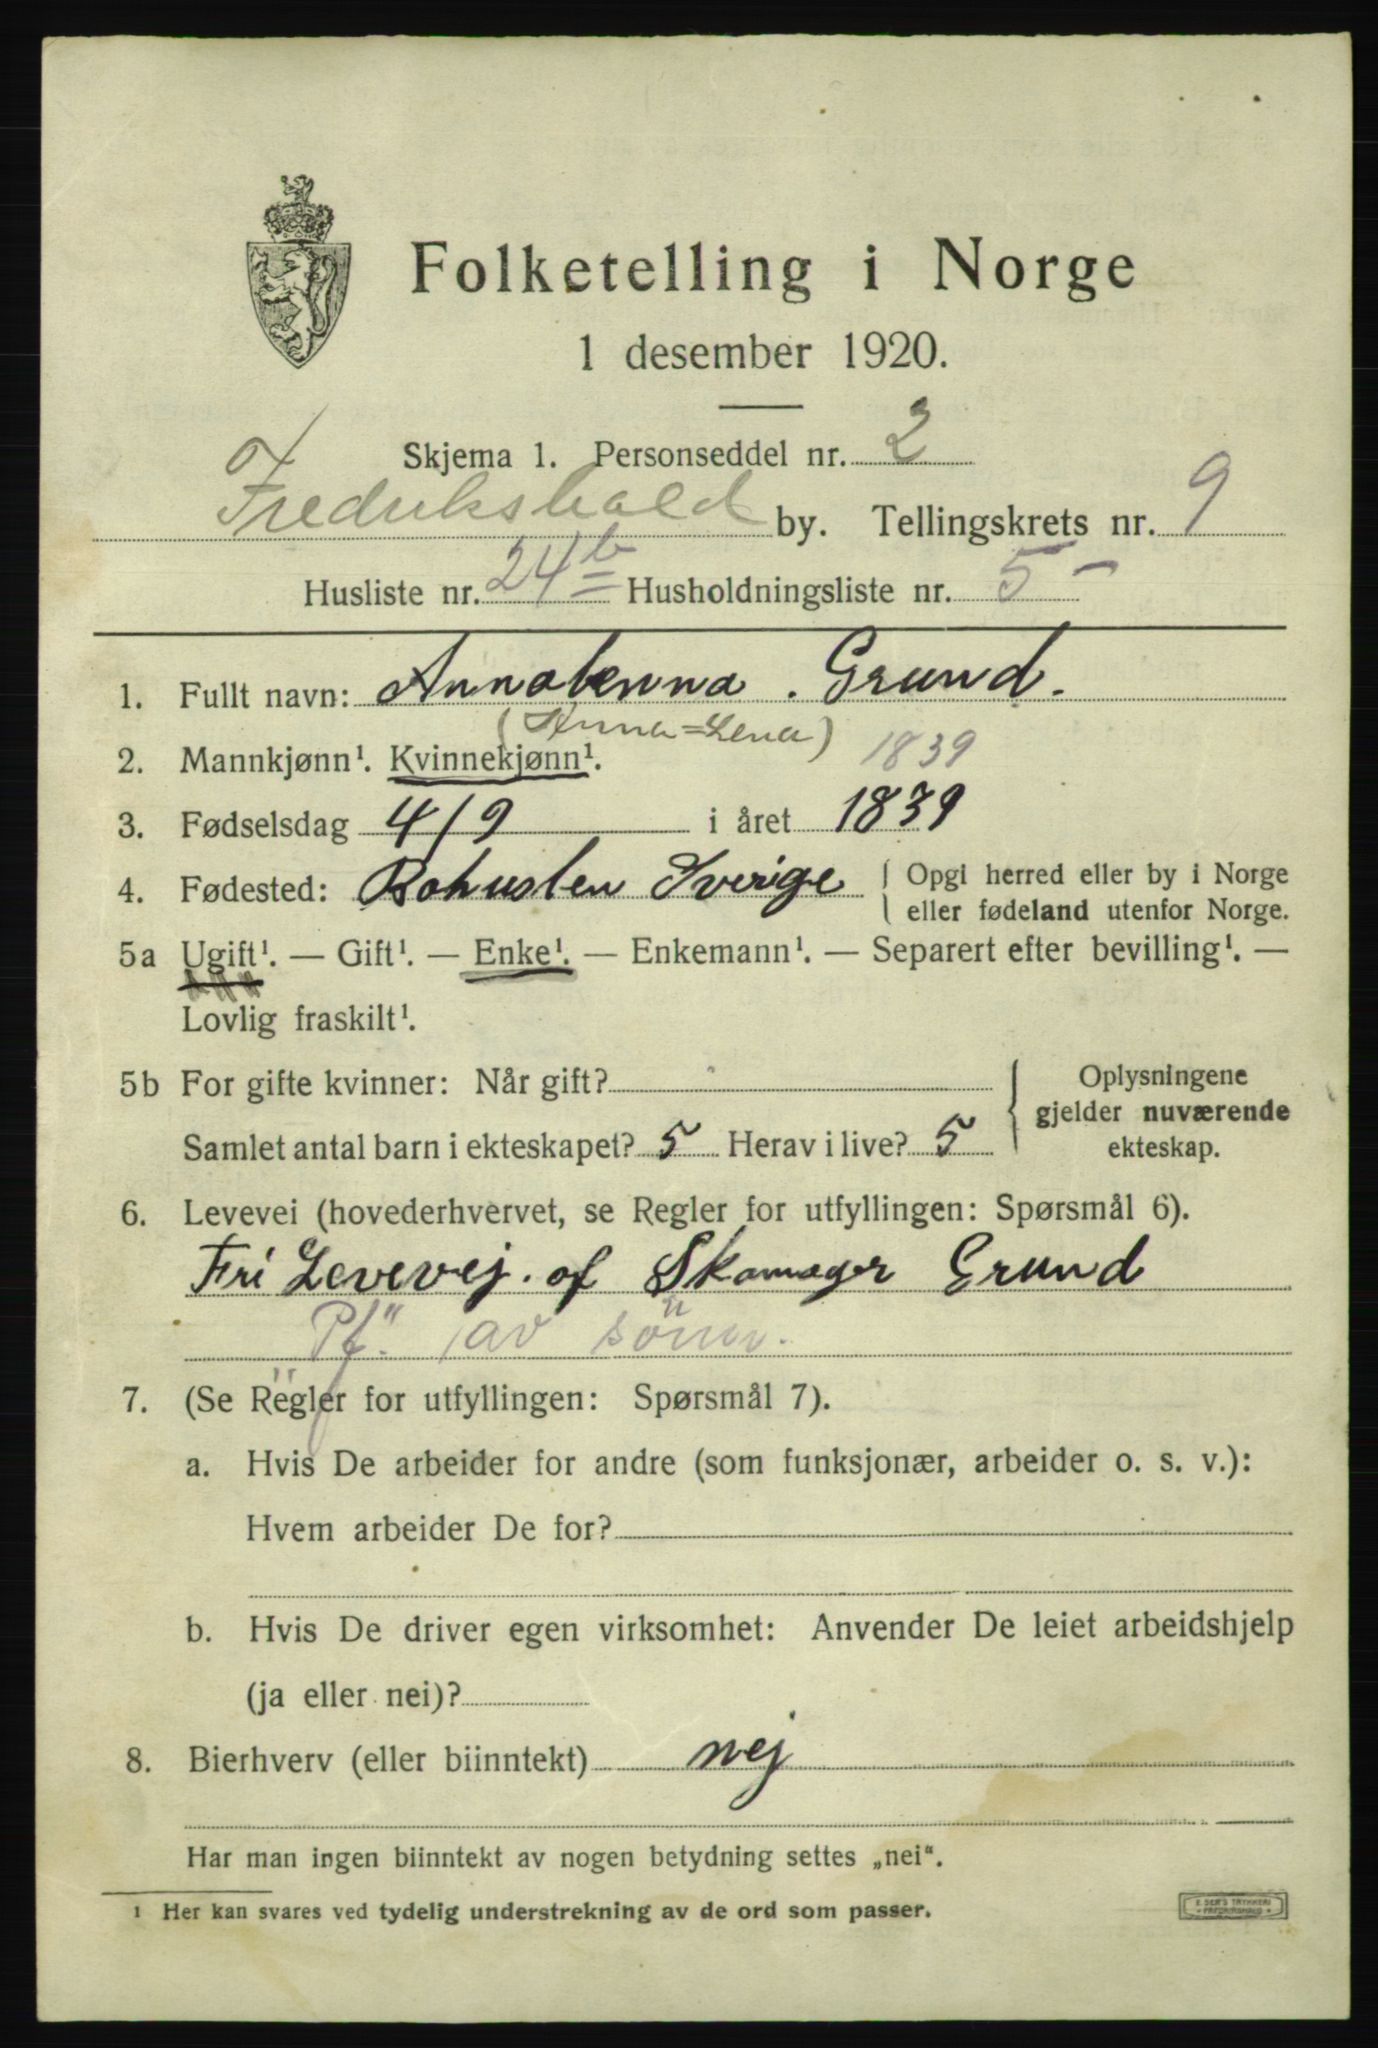 Folketelling i Norge
1 desember 1920.
Skjema 1. Personseddel nr. 2
Fredrikshald by. Tellingskrets nr. 9
Husliste nr. 24b Husholdningsliste nr. 5
1. Fullt navn: Annalenna. Grund.
(Anna=Lena)
2. Mannkjønn¹. Kvinnekjønn¹. 1839
3. Fødselsdag 4/9 i året 1839
4. Fødested: Bohuslen Sverige { Opgi herred eller by i Norge
eller fødeland utenfor Norge.
5a Ugift¹. — Gift¹. — Enke¹. — Enkemann¹. — Separert efter bevilling¹. —
Lovlig fraskilt¹.
5b For gifte kvinner: Når gift? { Oplysningene
gjelder nuværende
Samlet antal barn i ekteskapet? 5 Herav i live? 5 ekteskap.
6. Levevei (hovederhvervet, se Regler for utfyllingen: Spørsmål 6).
Fri Levevej. af Skomager Grund
Pf. av sönn.
7. (Se Regler for utfyllingen: Spørsmål 7).
a. Hvis De arbeider for andre (som funksjonær, arbeider o. s. v.):
Hvem arbeider De for?
b. Hvis De driver egen virksomhet: Anvender De leiet arbeidshjelp
(ja eller nei)?
8. Bierhverv (eller biinntekt) nej
Har man ingen biinntekt av nogen betydning settes „nei“.
1 Her kan svares ved tydelig understrekning av de ord som passer.